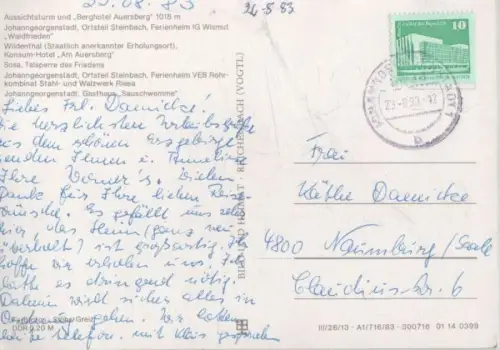 23.08.83
24.8.83
Aussichtsturm und „Berghotel Auersberg" 1018 m
Johanngeorgenstadt, Ortsteil Steinbach, Ferienheim IG Wismut
„Waldfrieden"
Wildenthal (Staatlich anerkannter Erholungsort),
Konsum-Hotel „Am Auersberg"
Sosa, Talsperre des Friedens
Johanngeorgenstadt, Ortsteil Steinbach, Ferienheim VEB Rohr-
kombinat Stahl- und Walzwerk Riesa
Johanngeorgenstadt: Gasthaus „Sauschwemme"
Liebes Frl. Damitke!
Die herzlichsten Urlaubsgrüße
aus dem schönen Erzgebirge
senden Ihnen
Ihre Vielen
Dank für Ihre lieben Reise-
wünsche. Es gefällt uns sehr
hier, das Heim (ganz neu
) ist großartig. Ich
hoffe Sie erholen uns! Ich
hätte es dringend nötig.
Daheim wird sicher alles in
Ordnung gehen. Wir haben
ja Telefon. mit Klaus gesprochen
DDR 0,20 M
BILD UND HEIMAT REICHENBACH (VOGTL)
10
23.-8.83-17
b
Frau
Käthe Damitke
4800 Naumburg/Saale
Claudiusstr. 6
III/26/13 · A1/716/83 · 300716 01 14 0399